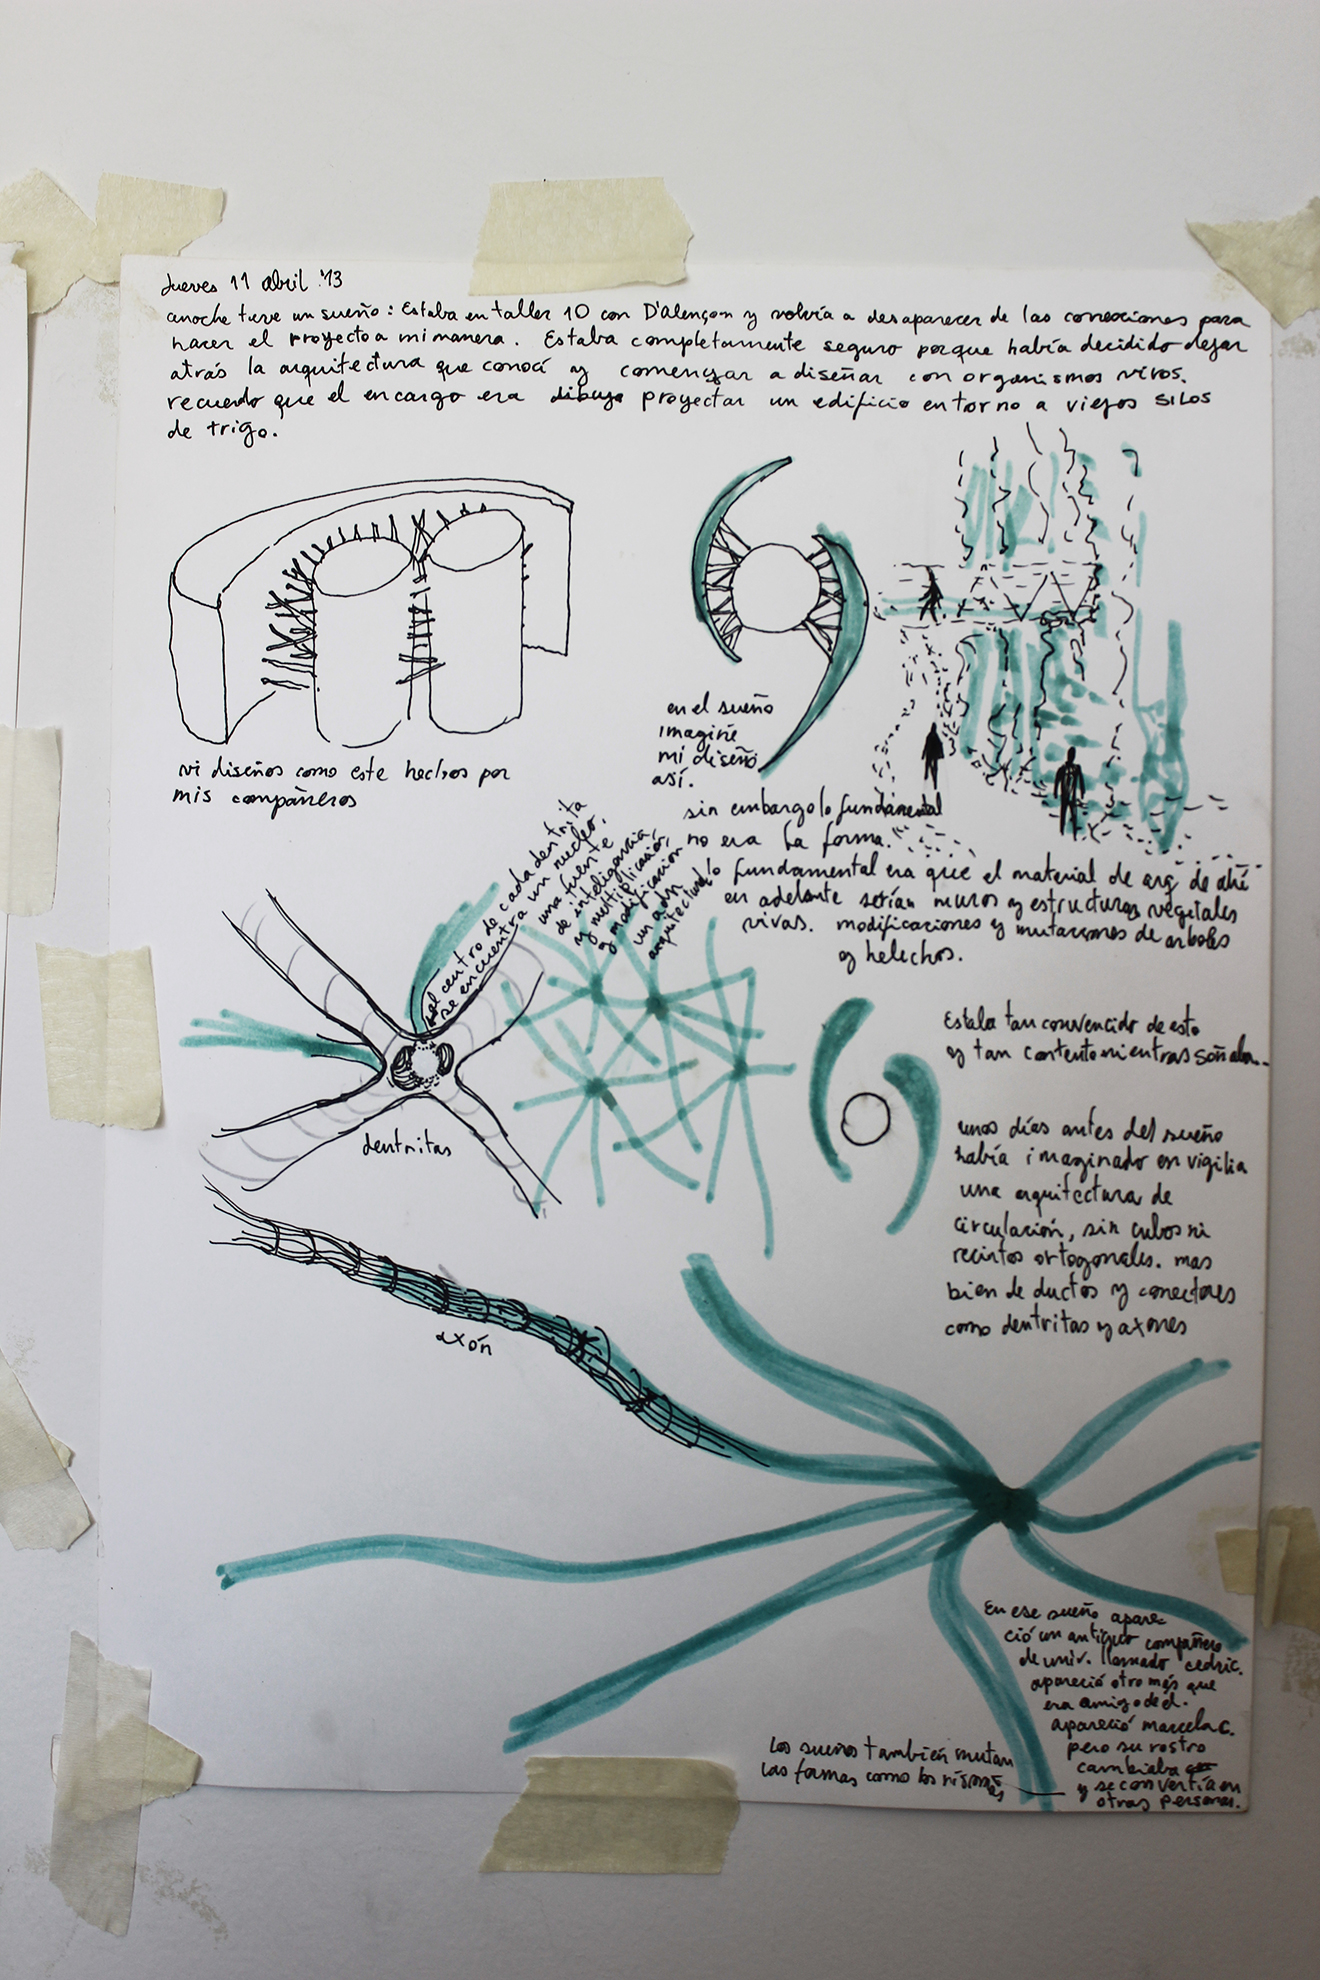 Jueves 11 abril '13
anoche tuve un sueño: Estaba en taller 10 con D'Alençon y volvía a desaparecer de las correcciones para
hacer el proyecto a mi manera. Estaba completamente seguro porque había decidido dejar
atrás la arquitectura que conocí y comenzar a diseñar con organismos vivos.
recuerdo que el encargo era dibuja proyectar un edificio en torno a viejos silos
de trigo.
vi diseños como este hechos por
mis compañeros
en el sueño
imaginé
mi diseño
así.
sin embargo lo fundamental
no era la forma.
lo fundamental era que el material de arq de ahí
en adelante serían muros y estructuras vegetales
vivas. modificaciones y mutaciones de arboles
y helechos.
al centro de cada dentrita
se encuentra un nucleo.
una fuente
de inteligencia,
y multiplicación,
y modificación
un adn
arquitectural
dentritas
Estaba tan convencido de esto
y tan contento mientras soñaba...
unos días antes del sueño
había imaginado en vigilia
una arquitectura de
circulación, sin cubos ni
recintos ortogonales. mas
bien de ductos y conectores
como dentritas y axones
axón
En ese sueño apare-
ció un antiguo compañero
de univ. llamado cedric.
apareció otro más que
era amigo de él.
apareció marcela c.
pero su rostro
cambiaba
y se convertía en
otras personas.
los sueños también mutan
las formas como los